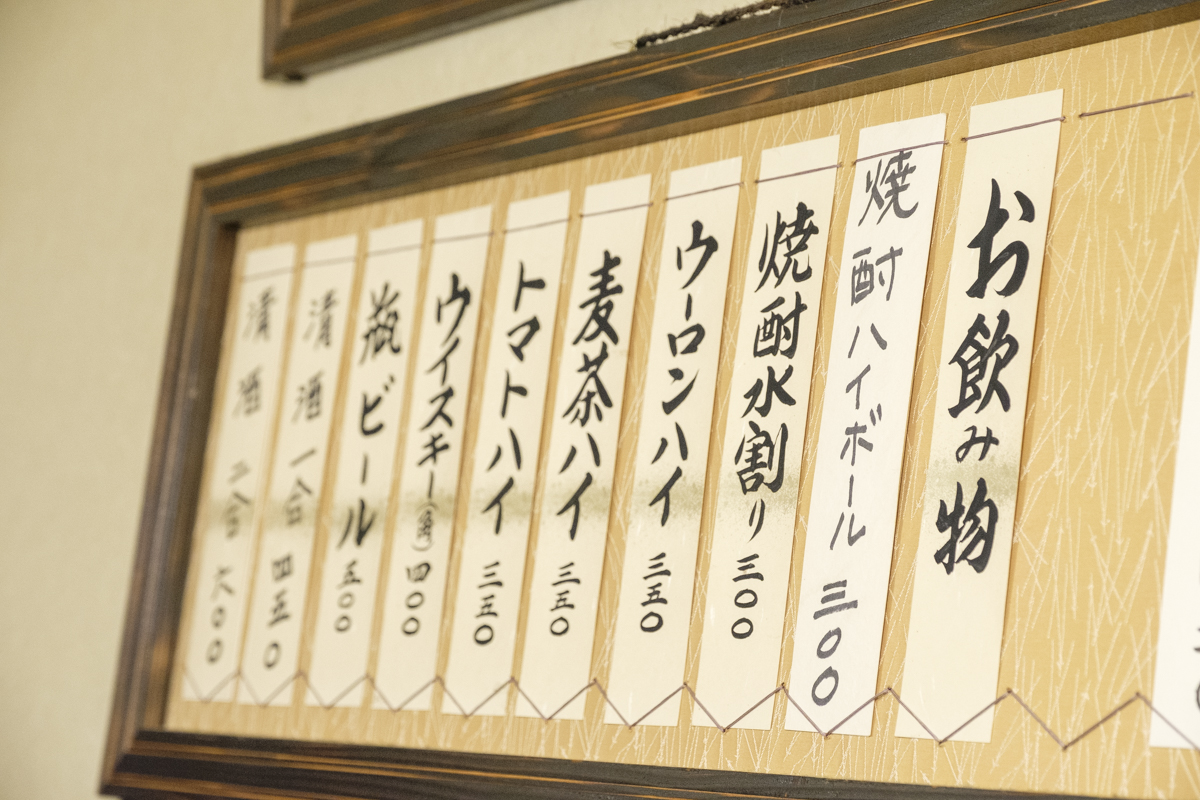 お飲み物
焼酎ハイボール 三〇〇
焼酎水割り 三〇〇
ウーロンハイ 三五〇
麦茶ハイ 三五〇
トマトハイ 三五〇
ウイスキー 四〇〇
瓶ビール 五〇〇
清酒一合 四五〇
清酒二合 六〇〇